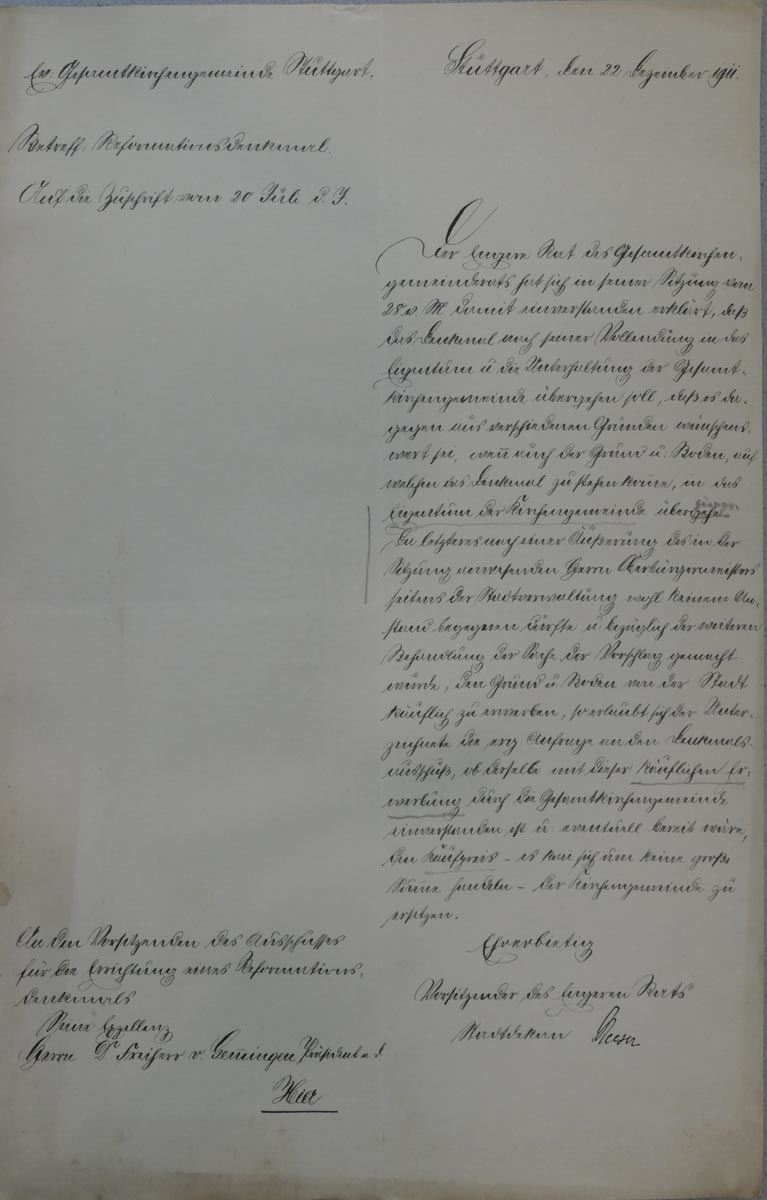 Ev. Gesamtkirchengemeinde Stuttgart.
Stuttgart, den 22 Dezember 1911.
Betreff: Reformationsdenkmal.
Auf die Zuschrift vom 20 Juli d. J.
Der Engere Rat des Gesamtkirchen-
gemeinderats hat sich in seiner Sitzung vom
28 v. M damit einverstanden erklärt, daß
das Denkmal nach seiner Vollendung in das
Eigentum u die Unterhaltung der Gesamt-
kirchengemeinde übergehen soll, daß es da-
gegen aus verschiedenen Gründen wünschens-
wert sei, wen̄ auch der Grund u: Boden, auf
welchen das Denkmal zu stehen kom̄e, in das
Eigentum der Kirchengemeinde übergehe
Da letzteres nach einer Äußerung des in der
Sitzung anwesenden Herrn Oberbürgermeisters
seitens der Stadtverwaltung wohl keinem An-
stand begegnen dürfte u bezüglich der weiteren
Behandlung der Sache der Vorschlag gemacht
wurde, den Grund u. Boden von der Stadt
käuflich zu erwerben, so erlaubt sich der Unter-
zeichnete die erg Anfrage an den Denkmals-
ausschuß, ob derselbe mit dieser käuflichen Er-
werbung durch die Gesamtkirchengemeinde
einverstanden ist u: eventuell bereit wäre,
den Kaufpreis – es kan̄ sich um keine große
Sum̄e handeln – der Kirchengemeinde zu
ersetzen.
Ehrerbietig
Vorsitzender des Engeren Rats
Stadtdekan
An den Vorsitzenden des Ausschusses
für die Errichtung eines Reformations-
denkmals
Seine Exzellenz
Herrn Dr Freiherr v. Gem̄ingen, Präsident a. d.
Hier